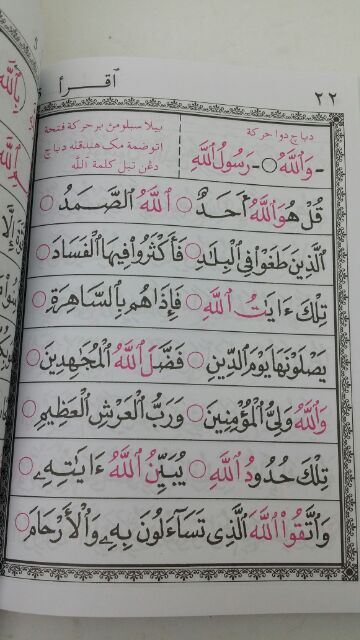 ٢٢
اقرأ
دباچ دوا حركة
- وَاللَّهُ ○ - رَسُولُ اللَّهِ
بيلا سبلومڽ برحركة فتحة
اتو ضمة مک هندقله دباچ
دڠن تبل كلمة الله
قُلْ هُوَ اللَّهُ أَحَدٌ ○ اَللَّهُ الصَّمَدُ ○
الَّذِينَ طَغَوْا فِي الْبِلَادِ ○ فَأَكْثَرُوا فِيهَا الْفَسَادَ ○
تِلْكَ ءَايَتُ اللَّهِ ○ فَإِذَا هُم بِالسَّاهِرَةِ ○
يَصْلَوْنَهَا يَوْمَ الدِّينِ ○ فَضَّلَ اللَّهُ الْمُجَهِدِينَ ○
وَاللَّهُ وَلِيُّ الْمُؤْمِنِينَ ○ وَرَبُّ الْعَرْشِ الْعَظِيمِ ○
تِلْكَ حُدُودُ اللَّهِ ○ يُبَيِّنُ اللَّهُ ءَايَتِهِ ○
وَاتَّقُوا اللَّهَ الَّذِي تَسَآءَلُونَ بِهِ وَالْأَرْحَامَ ○